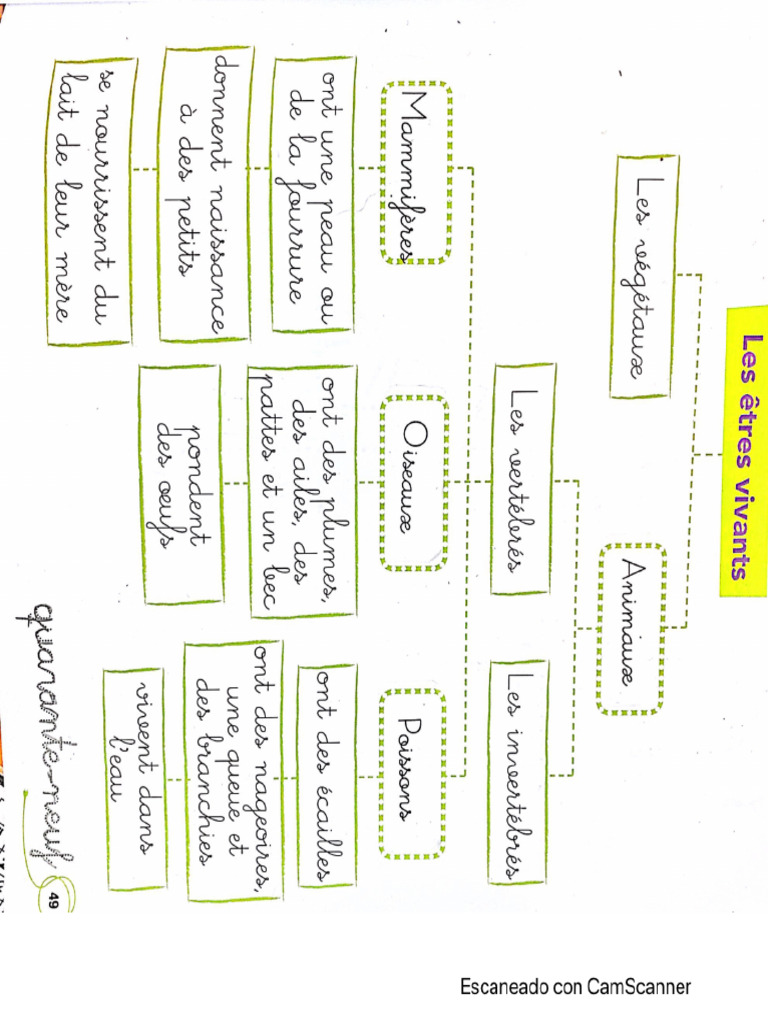 Les êtres vivants
Les végétaux
Animaux
Les vertébrés
Les invertébrés
Mammifères
Oiseaux
Poissons
ont une peau ou
de la fourrure
donnent naissance
à des petits
se nourrissent du
lait de leur mère
ont des plumes,
des ailes, des
pattes et un bec
pondent
des œufs
ont des écailles
ont des nageoires,
une queue et
des branchies
vivent dans
l'eau
quarante-neuf
49
Escaneado con CamScanner